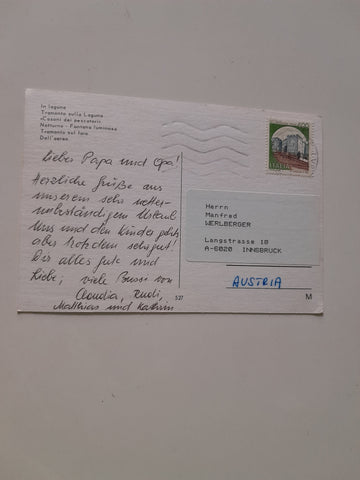 In laguna
Tramonto sulla Laguna
«Casoni dei pescatori»
Notturno - Fontana luminosa
Tramonto sul faro
Dall'aereo
Lieber Papa und Opa!
Herzliche Grüße aus
unserem sehr wetter-
unbeständigen Urlaub
Uns und den Kinder geht's
aber trotzdem sehr gut!
Dir alles gute und
Liebe; viele Bussi von
Claudia, Rudi,
Matthias und Kathrin
ITALIA
Herrn
Manfred
WERLBERGER
Langstrasse 18
A-6020 INNSBRUCK
AUSTRIA
527
M